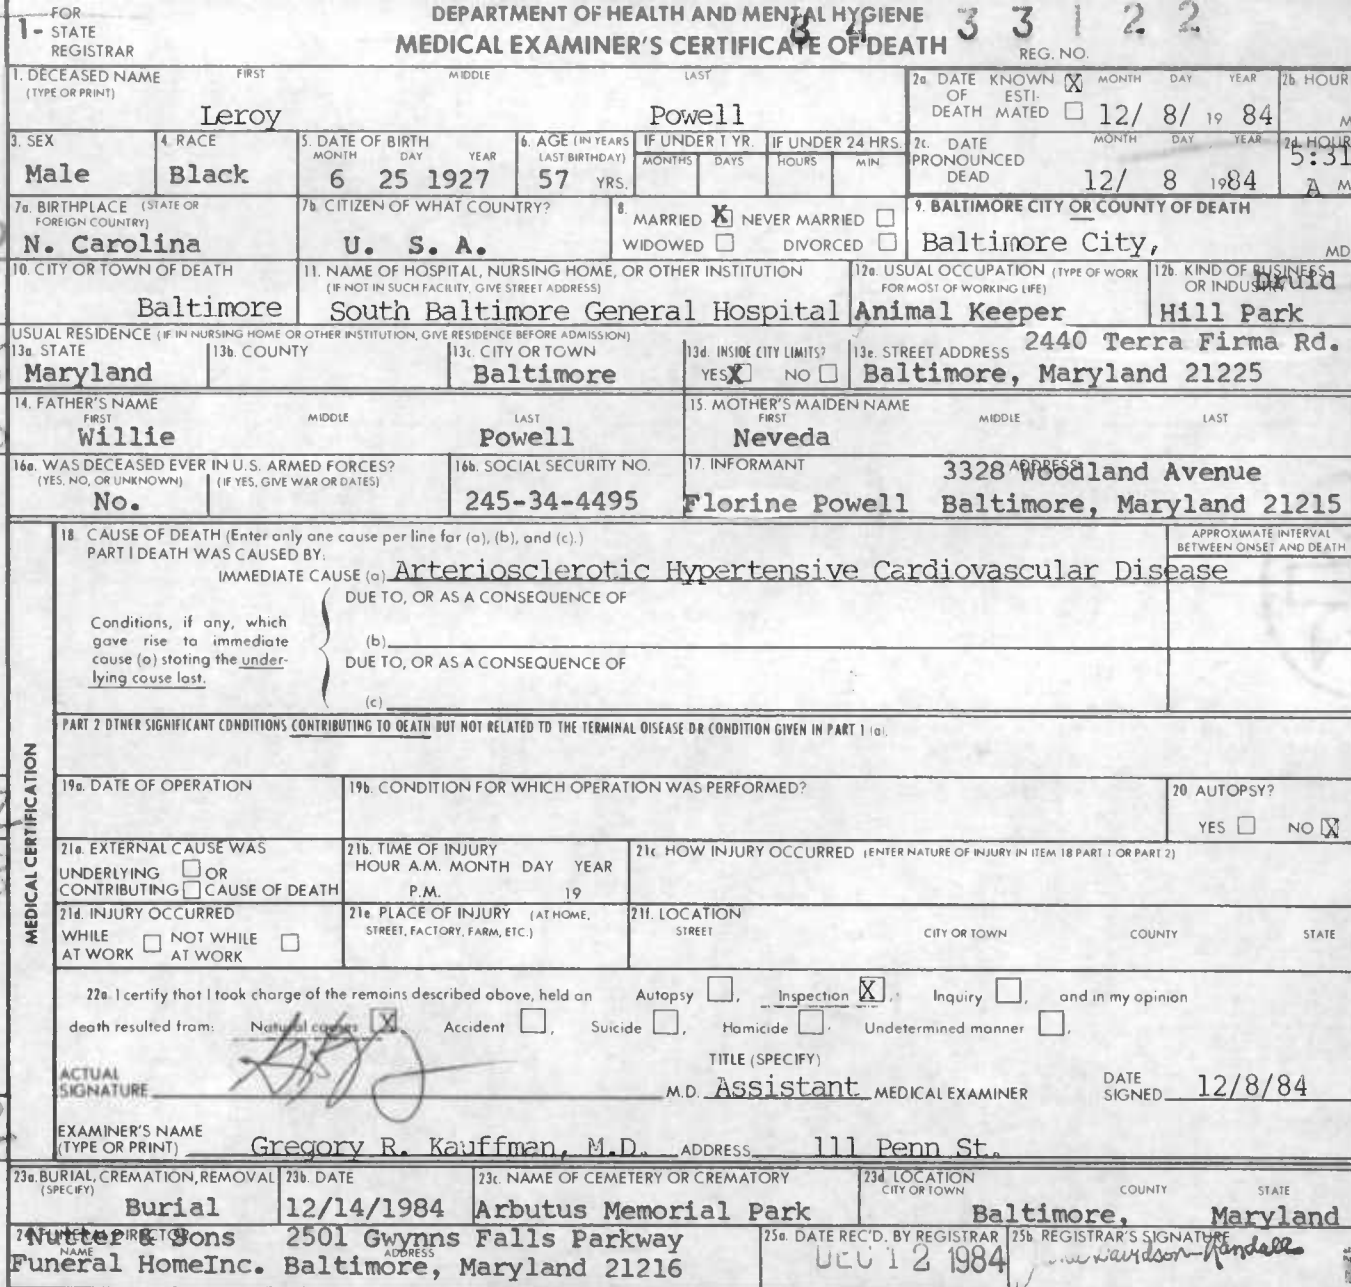 1 - FOR STATE REGISTRAR
DEPARTMENT OF HEALTH AND MENTAL HYGIENE
MEDICAL EXAMINER'S CERTIFICATE OF DEATH
84 33122
REG. NO.
1. DECEASED NAME (TYPE OR PRINT) FIRST MIDDLE LAST
Leroy Powell
2a. DATE OF DEATH KNOWN X ESTIMATED MONTH DAY YEAR
12/ 8/ 19 84
2b HOUR
M
3. SEX
Male
4. RACE
Black
5. DATE OF BIRTH MONTH DAY YEAR
6 25 1927
6. AGE (IN YEARS LAST BIRTHDAY)
57 YRS.
IF UNDER 1 YR. MONTHS DAYS
IF UNDER 24 HRS. HOURS MIN
2c. DATE PRONOUNCED DEAD MONTH DAY YEAR
12/ 8 1984
2d. HOUR
5:31
A M
7a. BIRTHPLACE (STATE OR FOREIGN COUNTRY)
N. Carolina
7b. CITIZEN OF WHAT COUNTRY?
U. S. A.
8. MARRIED X NEVER MARRIED
WIDOWED DIVORCED
9. BALTIMORE CITY OR COUNTY OF DEATH
Baltimore City, MD
10. CITY OR TOWN OF DEATH
Baltimore
11. NAME OF HOSPITAL, NURSING HOME, OR OTHER INSTITUTION
(IF NOT IN SUCH FACILITY, GIVE STREET ADDRESS)
South Baltimore General Hospital
12a. USUAL OCCUPATION (TYPE OF WORK FOR MOST OF WORKING LIFE)
Animal Keeper
12b. KIND OF BUSINESS OR INDUSTRY
Druid
Hill Park
USUAL RESIDENCE (IF IN NURSING HOME OR OTHER INSTITUTION, GIVE RESIDENCE BEFORE ADMISSION)
13a STATE
Maryland
13b. COUNTY
13c. CITY OR TOWN
Baltimore
13d. INSIDE CITY LIMITS?
YES X NO
13e. STREET ADDRESS 2440 Terra Firma Rd.
Baltimore, Maryland 21225
14. FATHER'S NAME
FIRST MIDDLE LAST
Willie Powell
15. MOTHER'S MAIDEN NAME
FIRST MIDDLE LAST
Neveda
16a. WAS DECEASED EVER IN U.S. ARMED FORCES?
(YES, NO, OR UNKNOWN) (IF YES, GIVE WAR OR DATES)
No.
16b. SOCIAL SECURITY NO.
245-34-4495
17. INFORMANT ADDRESS
3328 Woodland Avenue
Florine Powell Baltimore, Maryland 21215
MEDICAL CERTIFICATION
18 CAUSE OF DEATH (Enter only one cause per line for (a), (b), and (c).)
PART I DEATH WAS CAUSED BY:
APPROXIMATE INTERVAL BETWEEN ONSET AND DEATH
IMMEDIATE CAUSE (a) Arteriosclerotic Hypertensive Cardiovascular Disease
DUE TO, OR AS A CONSEQUENCE OF
Conditions, if any, which
gave rise to immediate
cause (a) stating the under-
lying cause last.
(b)
DUE TO, OR AS A CONSEQUENCE OF
(c)
PART 2 OTHER SIGNIFICANT CONDITIONS CONTRIBUTING TO DEATH BUT NOT RELATED TO THE TERMINAL DISEASE OR CONDITION GIVEN IN PART 1 (a).
19a. DATE OF OPERATION
19b. CONDITION FOR WHICH OPERATION WAS PERFORMED?
20 AUTOPSY?
YES NO X
21a. EXTERNAL CAUSE WAS
UNDERLYING OR
CONTRIBUTING CAUSE OF DEATH
21b. TIME OF INJURY
HOUR A.M. MONTH DAY YEAR
P.M. 19
21c HOW INJURY OCCURRED (ENTER NATURE OF INJURY IN ITEM 18 PART 1 OR PART 2)
21d. INJURY OCCURRED
WHILE AT WORK NOT WHILE AT WORK
21e PLACE OF INJURY (AT HOME, STREET, FACTORY, FARM, ETC.)
21f. LOCATION
STREET CITY OR TOWN COUNTY STATE
22a I certify that I took charge of the remains described above, held an Autopsy, Inspection X, Inquiry, and in my opinion
death resulted from: Natural causes X, Accident, Suicide, Homicide, Undetermined manner.
ACTUAL SIGNATURE
TITLE (SPECIFY)
M.D. Assistant MEDICAL EXAMINER
DATE SIGNED 12/8/84
EXAMINER'S NAME (TYPE OR PRINT) Gregory R. Kauffman, M.D. ADDRESS 111 Penn St.
23a. BURIAL, CREMATION, REMOVAL (SPECIFY)
Burial
23b. DATE
12/14/1984
23c. NAME OF CEMETERY OR CREMATORY
Arbutus Memorial Park
23d LOCATION
CITY OR TOWN COUNTY STATE
Baltimore, Maryland
24 FUNERAL DIRECTOR
NAME ADDRESS
Nutter & Sons 2501 Gwynns Falls Parkway
Funeral HomeInc. Baltimore, Maryland 21216
25a. DATE REC'D. BY REGISTRAR
DEC 12 1984
25b. REGISTRAR'S SIGNATURE
Davidson-Randall